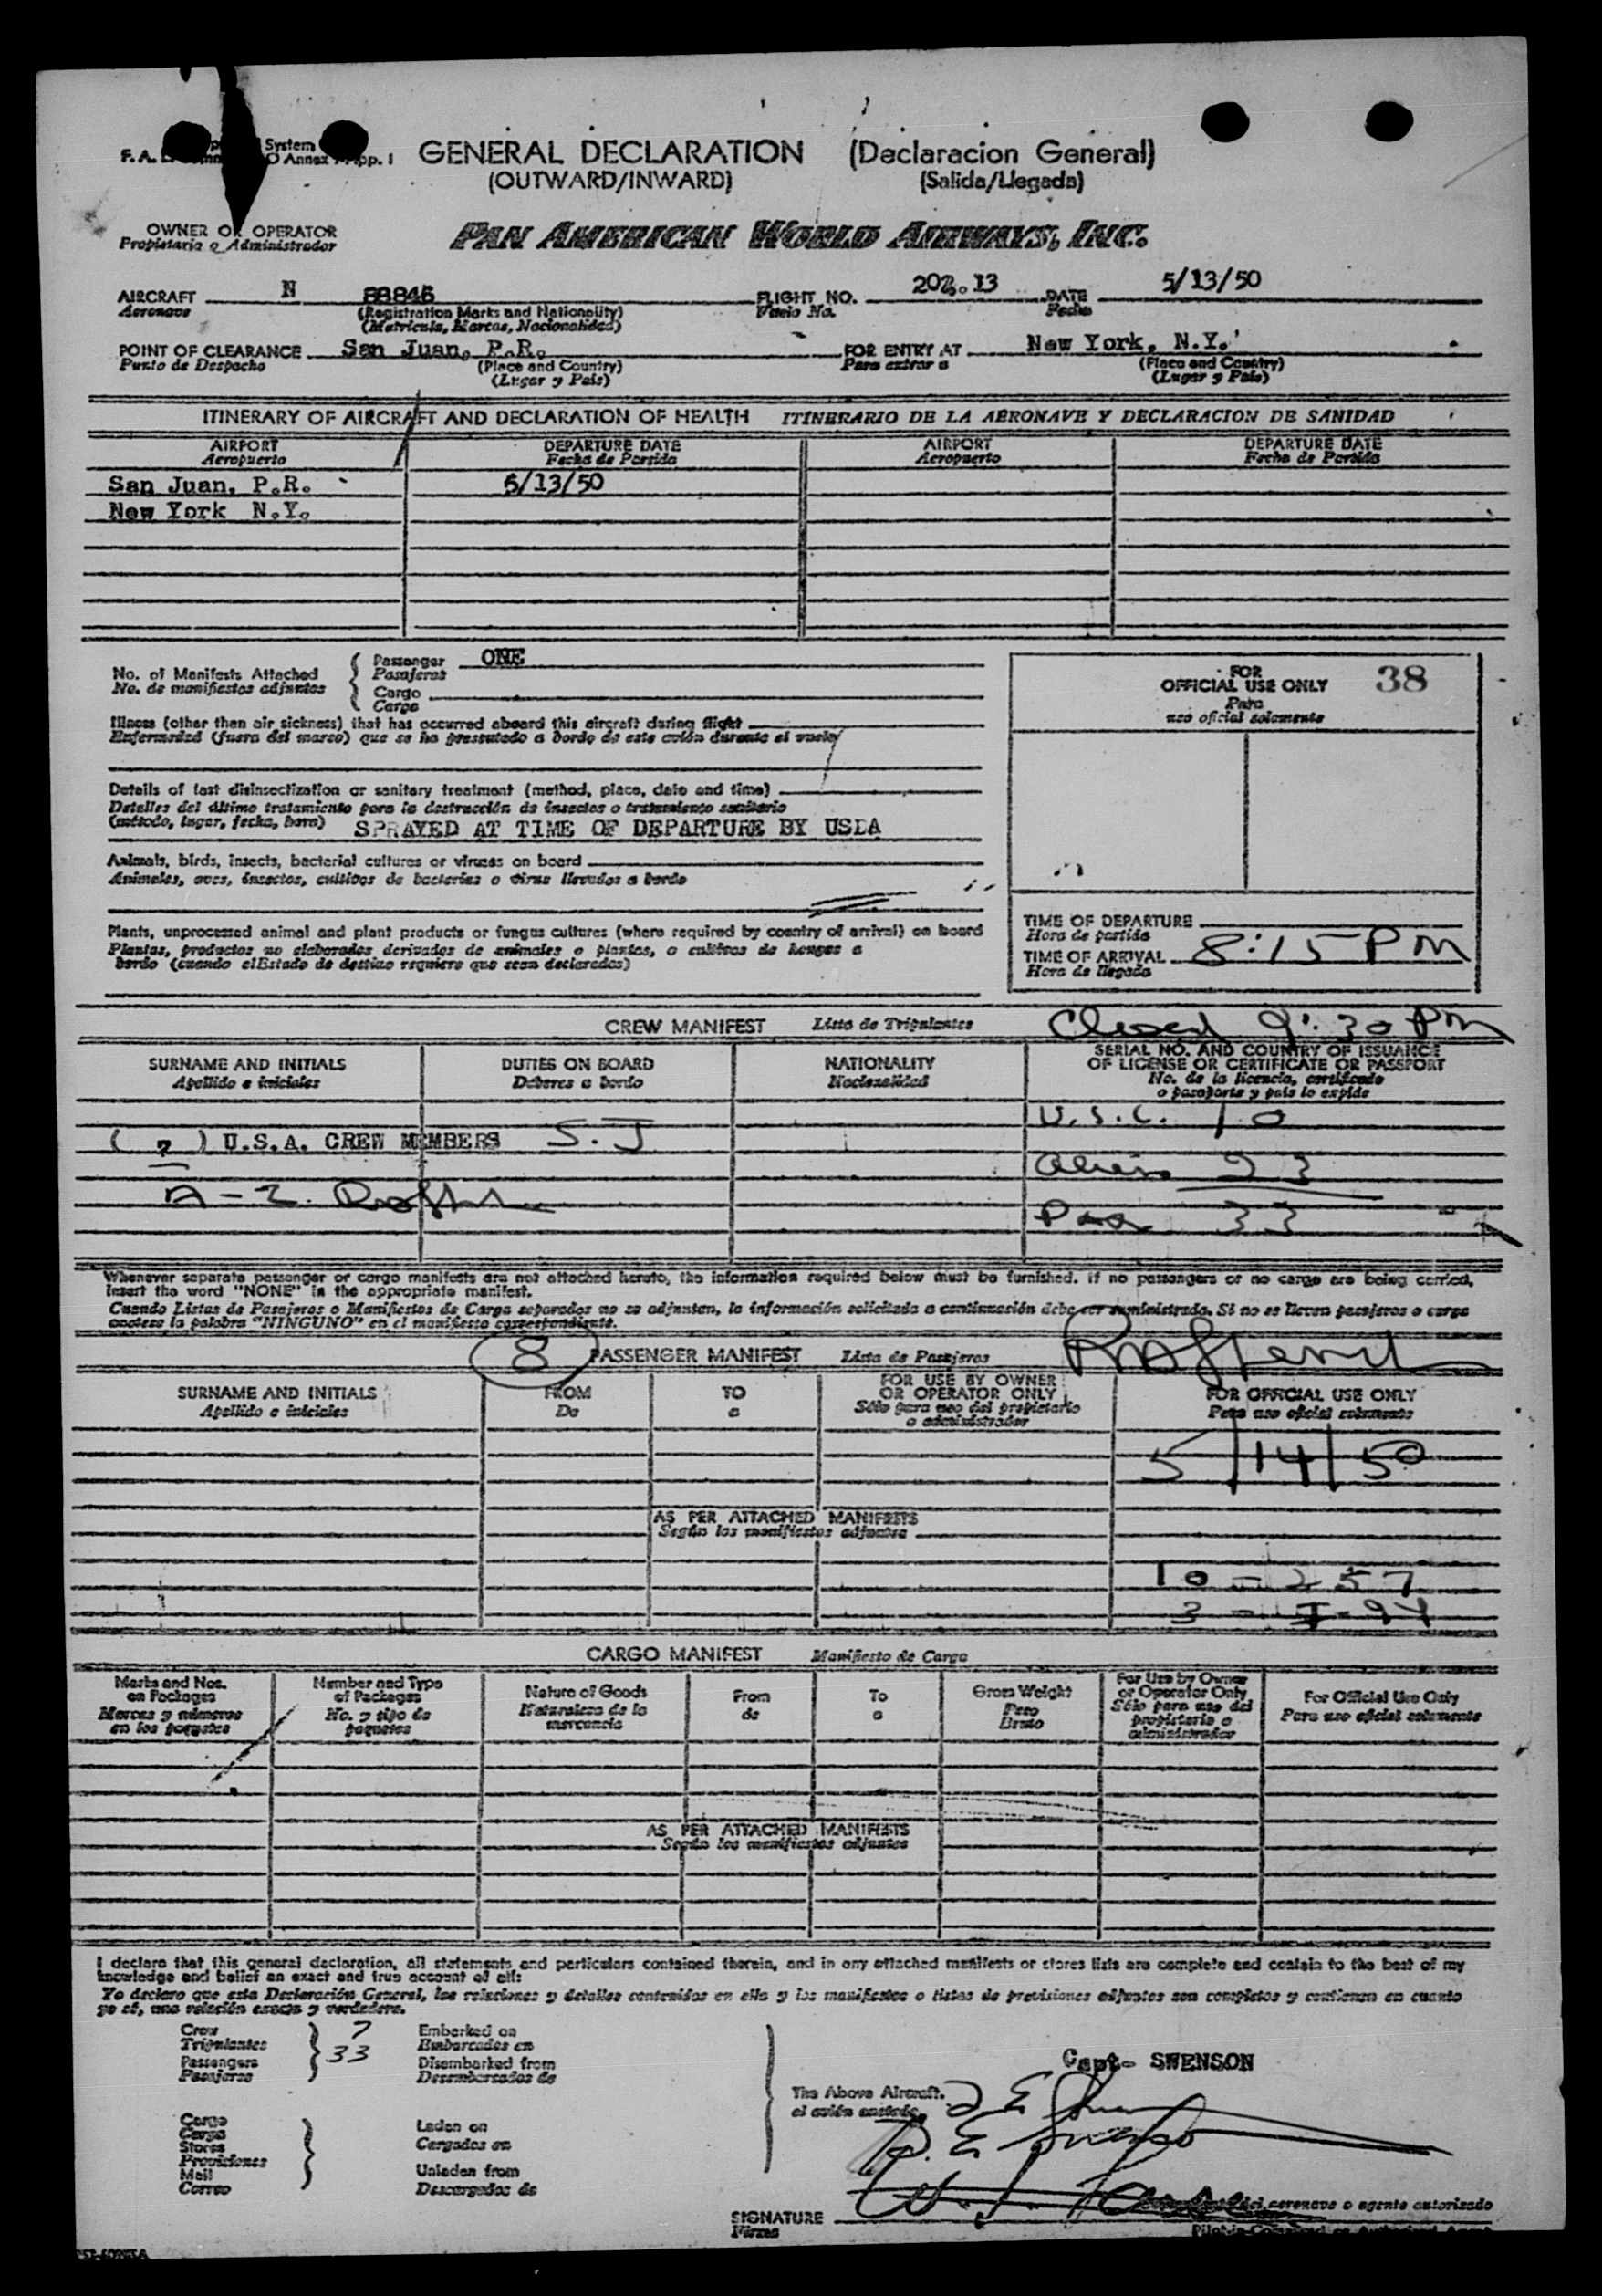 System
F. A. L. Annex App. 1
GENERAL DECLARATION (Declaracion General)
(OUTWARD/INWARD) (Salida/Llegada)
OWNER OR OPERATOR
Propietario o Administrador
PAN AMERICAN WORLD AIRWAYS, INC.
AIRCRAFT N 88846 FLIGHT NO. DATE 5/13/50
Aeronave (Registration Marks and Nationality) Vuelo No. Fecha
(Matricula, Marcas, Nacionalidad)
POINT OF CLEARANCE San Juan, P.R. FOR ENTRY AT New York, N.Y.
Punto de Despacho (Place and Country) Para entrar a (Place and Country)
(Lugar y Pais) (Lugar y Pais)
ITINERARY OF AIRCRAFT AND DECLARATION OF HEALTH ITINERARIO DE LA AERONAVE Y DECLARACION DE SANIDAD
AIRPORT DEPARTURE DATE AIRPORT DEPARTURE DATE
Aeropuerto Fecha de Partida Aeropuerto Fecha de Partida
San Juan, P.R. 5/13/50
New York N.Y.
No. of Manifests Attached Passenger ONE
No. de manifiestos adjuntos Pasajeros
Cargo
Carga
FOR 38
OFFICIAL USE ONLY
Para
uso oficial solamente
Illness (other than air sickness) that has occurred aboard this aircraft during flight
Enfermedad (fuera del mareo) que se ha presentado a bordo de este avión durante el vuelo
Details of last disinsectization or sanitary treatment (method, place, date and time)
Detalles del último tratamiento para la destrucción de insectos o tratamiento sanitario
(método, lugar, fecha, hora) SPRAYED AT TIME OF DEPARTURE BY USDA
Animals, birds, insects, bacterial cultures or viruses on board
Animales, aves, insectos, cultivos de bacterias o virus llevados a bordo
Plants, unprocessed animal and plant products or fungus cultures (where required by country of arrival) on board
Plantas, productos no elaborados derivados de animales o plantas, o cultivos de hongos a
bordo (cuando el Estado de destino requiere que sean declarados)
TIME OF DEPARTURE
Hora de partida
TIME OF ARRIVAL 8:15 PM
Hora de llegada
CREW MANIFEST Lista de Tripulantes Closed 9:30 PM
SURNAME AND INITIALS DUTIES ON BOARD NATIONALITY SERIAL NO. AND COUNTRY OF ISSUANCE
OF LICENSE OR CERTIFICATE OR PASSPORT
Apellido e iniciales Deberes a bordo Nacionalidad No. de la licencia, certificado
o pasaporte y pais lo expide
U.S.C. 10
( 7 ) U.S.A. CREW MEMBERS S.J
Alien 23
Pax 33
Whenever separate passenger or cargo manifests are not attached hereto, the information required below must be furnished. If no passengers or no cargo are being carried,
insert the word "NONE" in the appropriate manifest.
Cuando Listas de Pasajeros o Manifiestos de Carga separados no se adjuntan, la información solicitada a continuación debe ser suministrada. Si no se llevan pasajeros o carga
anotese la palabra "NINGUNO" en el manifiesto correspondiente.
8 PASSENGER MANIFEST Lista de Pasajeros
SURNAME AND INITIALS FROM TO FOR USE BY OWNER
OR OPERATOR ONLY FOR OFFICIAL USE ONLY
Apellido e iniciales De a Sólo para uso del propietario
o administrador Para uso oficial solamente
5/14/50
AS PER ATTACHED MANIFESTS
Según los manifiestos adjuntos
10 - 257
CARGO MANIFEST Manifiesto de Carga
Marks and Nos.
on Packages
Marcas y números
en los paquetes
Number and Type
of Packages
No. y tipo de
paquetes
Nature of Goods
Naturaleza de la
mercancia
From
de
To
a
Gross Weight
Peso
Bruto
For Use by Owner
or Operator Only
Sólo para uso del
propietario o
administrador
For Official Use Only
Para uso oficial solamente
AS PER ATTACHED MANIFESTS
Según los manifiestos adjuntos
I declare that this general declaration, all statements and particulars contained therein, and in any attached manifests or stores lists are complete and contain to the best of my
knowledge and belief an exact and true account of all:
Yo declaro que esta Declaración General, las relaciones y detalles contenidas en ella y los manifiestos o listas de provisiones adjuntos son completos y contienen en cuanto
yo sé, una relación exacta y verdadera.
Crew 7 Embarked on
Tripulantes 33 Embarcados en
Passengers Disembarked from
Pasajeros Desembarcados de
Capt- SWENSON
The Above Aircraft.
el avión anotado.
Cargo Laden on
Carga Cargados en
Stores
Provisiones
Mail Unladen from
Correo Descargados de
SIGNATURE
Firma
aeronave o agente autorizado